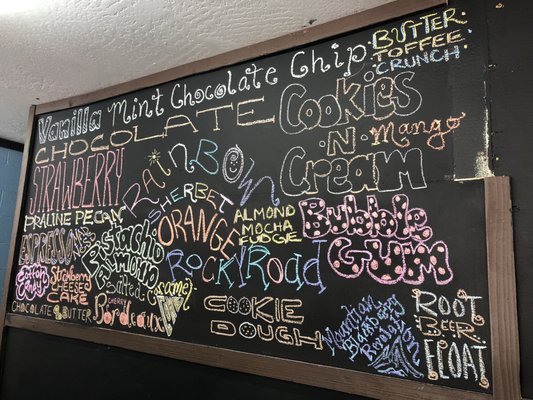 Vanilla Mint Chocolate Chip
BUTTER
TOFFEE
CRUNCH
CHOCOLATE
Cookies
'N
Cream
Mango
STRAWBERRY
Rainbow
SHERBET
ORANGE
PRALINE PECAN
ALMOND
MOCHA
FUDGE
Bubble
GUM
ESPRESSO
Pistachio
Almond
Rocky Road
Cotton
Candy
Strawberry
CHEESE
CAKE
Salted
Caramel
CHERRY
Bordeaux
CHOCOLATE BUTTER
COOKIE
DOUGH
Martian
Blackberry
Revolution
ROOT
BEER
FLOAT